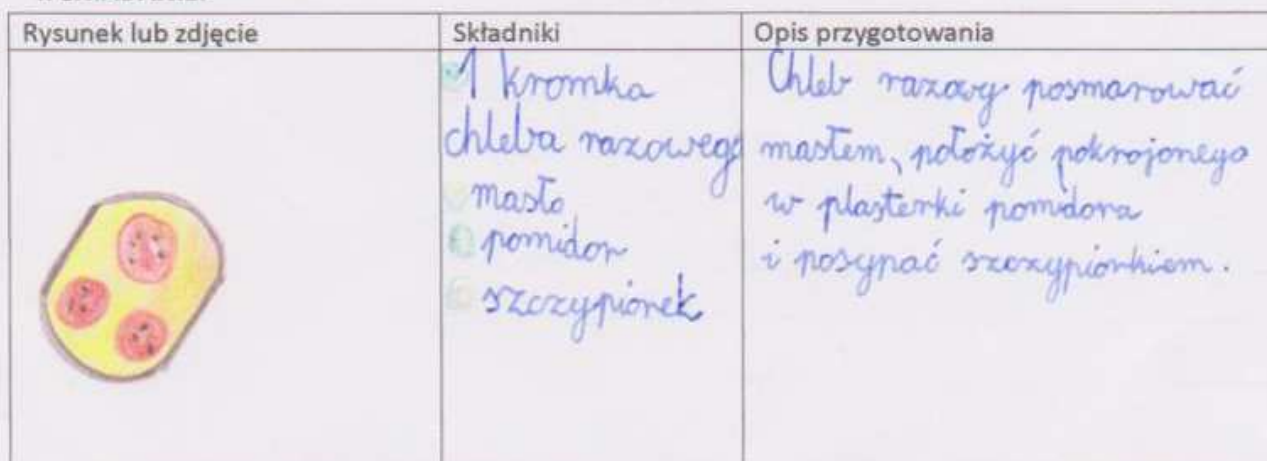 Rysunek lub zdjęcie
Składniki
Opis przygotowania
1 kromka
chleba razowego
masło
pomidor
szczypiorek
Chleb razowy posmarować
masłem, położyć pokrojonego
w plasterki pomidora
i posypać szczypiorkiem.